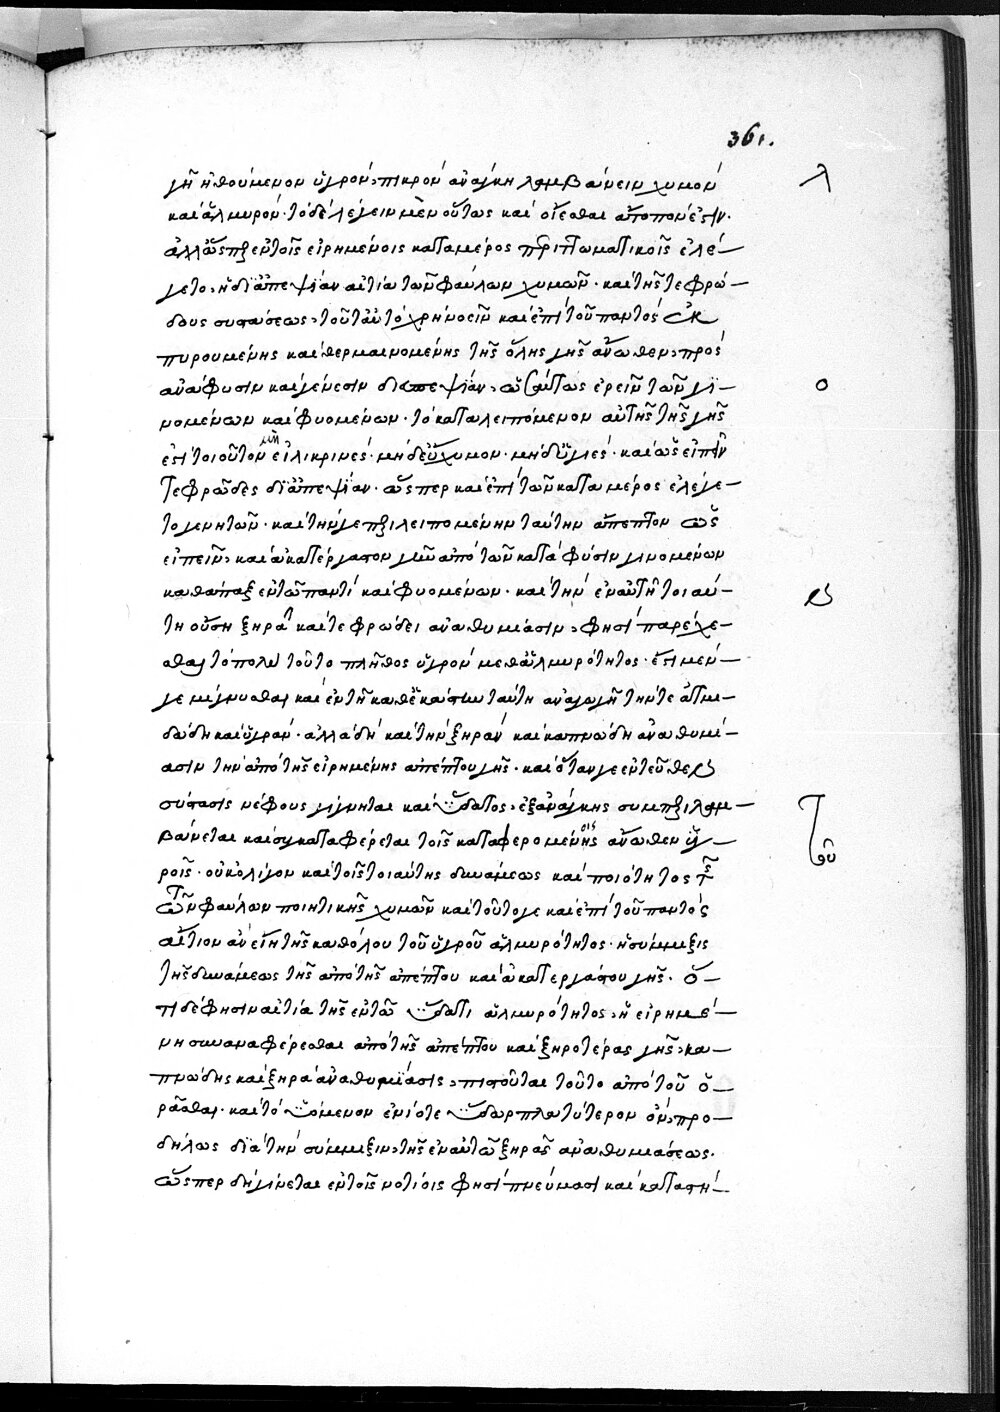 361.
γῆ ἠθούμενον ὑγρόν, πικρὸν ἀνάγκη λαμβάνειν χυμόν
καὶ ἁλμυρόν. τὸ δὲ λέγειν μὲν οὕτως καὶ οἴεσθαι ἄτοπον ἐστίν.
ἀλλ' ὥσπερ ἐν τοῖς εἰρημένοις κατὰ μέρος περιττωματικοῖς ἐλέ-
γετο, ἡ δι' ἀπεψίαν αἰτία τῶν φαύλων χυμῶν. καὶ τῆς τεφρώ-
δους συστάσεως, τοῦτ' αὐτὸ χρὴ νοεῖν καὶ ἐπὶ τοῦ παντός ἐκ
πυρουμένης καὶ θερμαινομένης τῆς ὅλης γῆς ἄνωθεν, πρὸς
ἀνάφυσιν καὶ γένεσιν διαπεψίαν, ὡσαύτως ἐρεῖν τῶν γι-
νομένων καὶ φυομένων. τὸ καταλειπόμενον αὐτῆς τῆς γῆς
ἐστὶ τοιοῦτον μὴ εἰλικρινές. μηδ' εὔχυμον. μηδ' ὑγιές. καὶ ὡς εἰπεῖν
τεφρῶδες δι' ἀπεψίαν. ὥσπερ καὶ ἐπὶ τῶν κατὰ μέρος ἐλέγε-
το γενητῶν. καὶ τήν γε περιλειπομένην ταύτην ἄπεπτον ὡς
εἰπεῖν, καὶ ἀκατέργαστον γῆν ἀπὸ τῶν κατὰ φύσιν γινομένων
καθάπαξ ἐν τῷ παντὶ καὶ φυομένων. καὶ τὴν ἐν αὐτῇ τοιαύ-
τη οὔση ξηρᾷ καὶ τεφρώδει ἀναθυμίασιν, φησὶ παρέχε-
σθαι τὸ πολὺ τοῦτο πλῆθος ὑγρὸν μεθ' ἁλμυρότητος. ἔστι μέν-
γε μίγνυσθαι καὶ ἐν τῇ καθ' ἑκάστην ταύτη ἀναγωγῇ τήν τε ἀτμι-
δώδη καὶ ὑγράν. ἀλλὰ δὴ καὶ τὴν ξηρὰν καὶ καπνώδη ἀναθυμί-
ασιν τὴν ἀπὸ τῆς εἰρημένης ἀπέπτου γῆς. καὶ ὅταν γε ἐντεῦθεν
σύστασις νέφους γίγνηται καὶ ὕδατος, ἐξ ἀνάγκης συμπεριλαμ-
βάνεται καὶ συγκαταφέρεται τοῖς καταφερομένοις ἄνωθεν ὑγ-
ροῖς. οὐκ ὀλίγον καὶ τοῖς τοιαύτης δυνάμεως καὶ ποιότητος τῆς
τῶν φαύλων ποιητικῆς χυμῶν καὶ τοῦτό γε καὶ ἐπὶ τοῦ παντὸς
αἴτιον ἂν εἴη τῆς καθόλου τοῦ ὑγροῦ ἁλμυρότητος. ἡ σύμμιξις
τῆς δυνάμεως τῆς ἀπὸ τῆς ἀπέπτου καὶ ἀκατεργάστου γῆς. ὅ-
τι δέ φησιν αἰτία τῆς ἐν τῷ ὕδατι ἁλμυρότητος, ἡ εἰρημέ-
νη συναναφέρεσθαι ἀπὸ τῆς ἀπέπτου καὶ ξηροτέρας γῆς, κα-
πνώδης καὶ ξηρὰ ἀναθυμίασις, πιστοῦται τοῦτο ἀπὸ τοῦ ὁ-
ρᾶσθαι. καὶ τὸ ὑόμενον ἐνίοτε ὕδωρ πλατύτερον ὄν, προ-
δήλως διὰ τὴν σύμμιξιν, τῆς ἐν αὐτῷ ξηρᾶς ἀναθυμιάσεως.
ὥσπερ δὴ γίνεται ἐν τοῖς νοτίοις φησὶ πνεύμασι καὶ κατὰ τὴ-